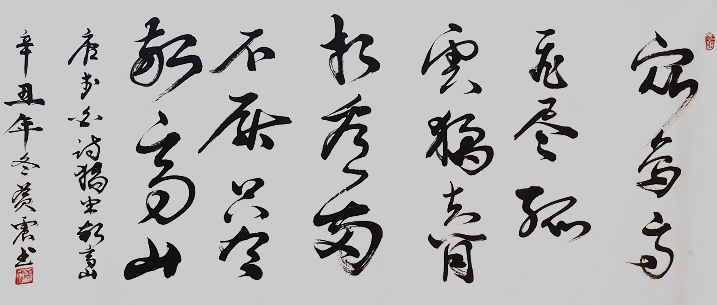 众鸟高
飛尽孤
雲獨去閒
相看兩
不厭只有
敬亭山
唐李白诗獨坐敬亭山
辛丑年冬黄震书